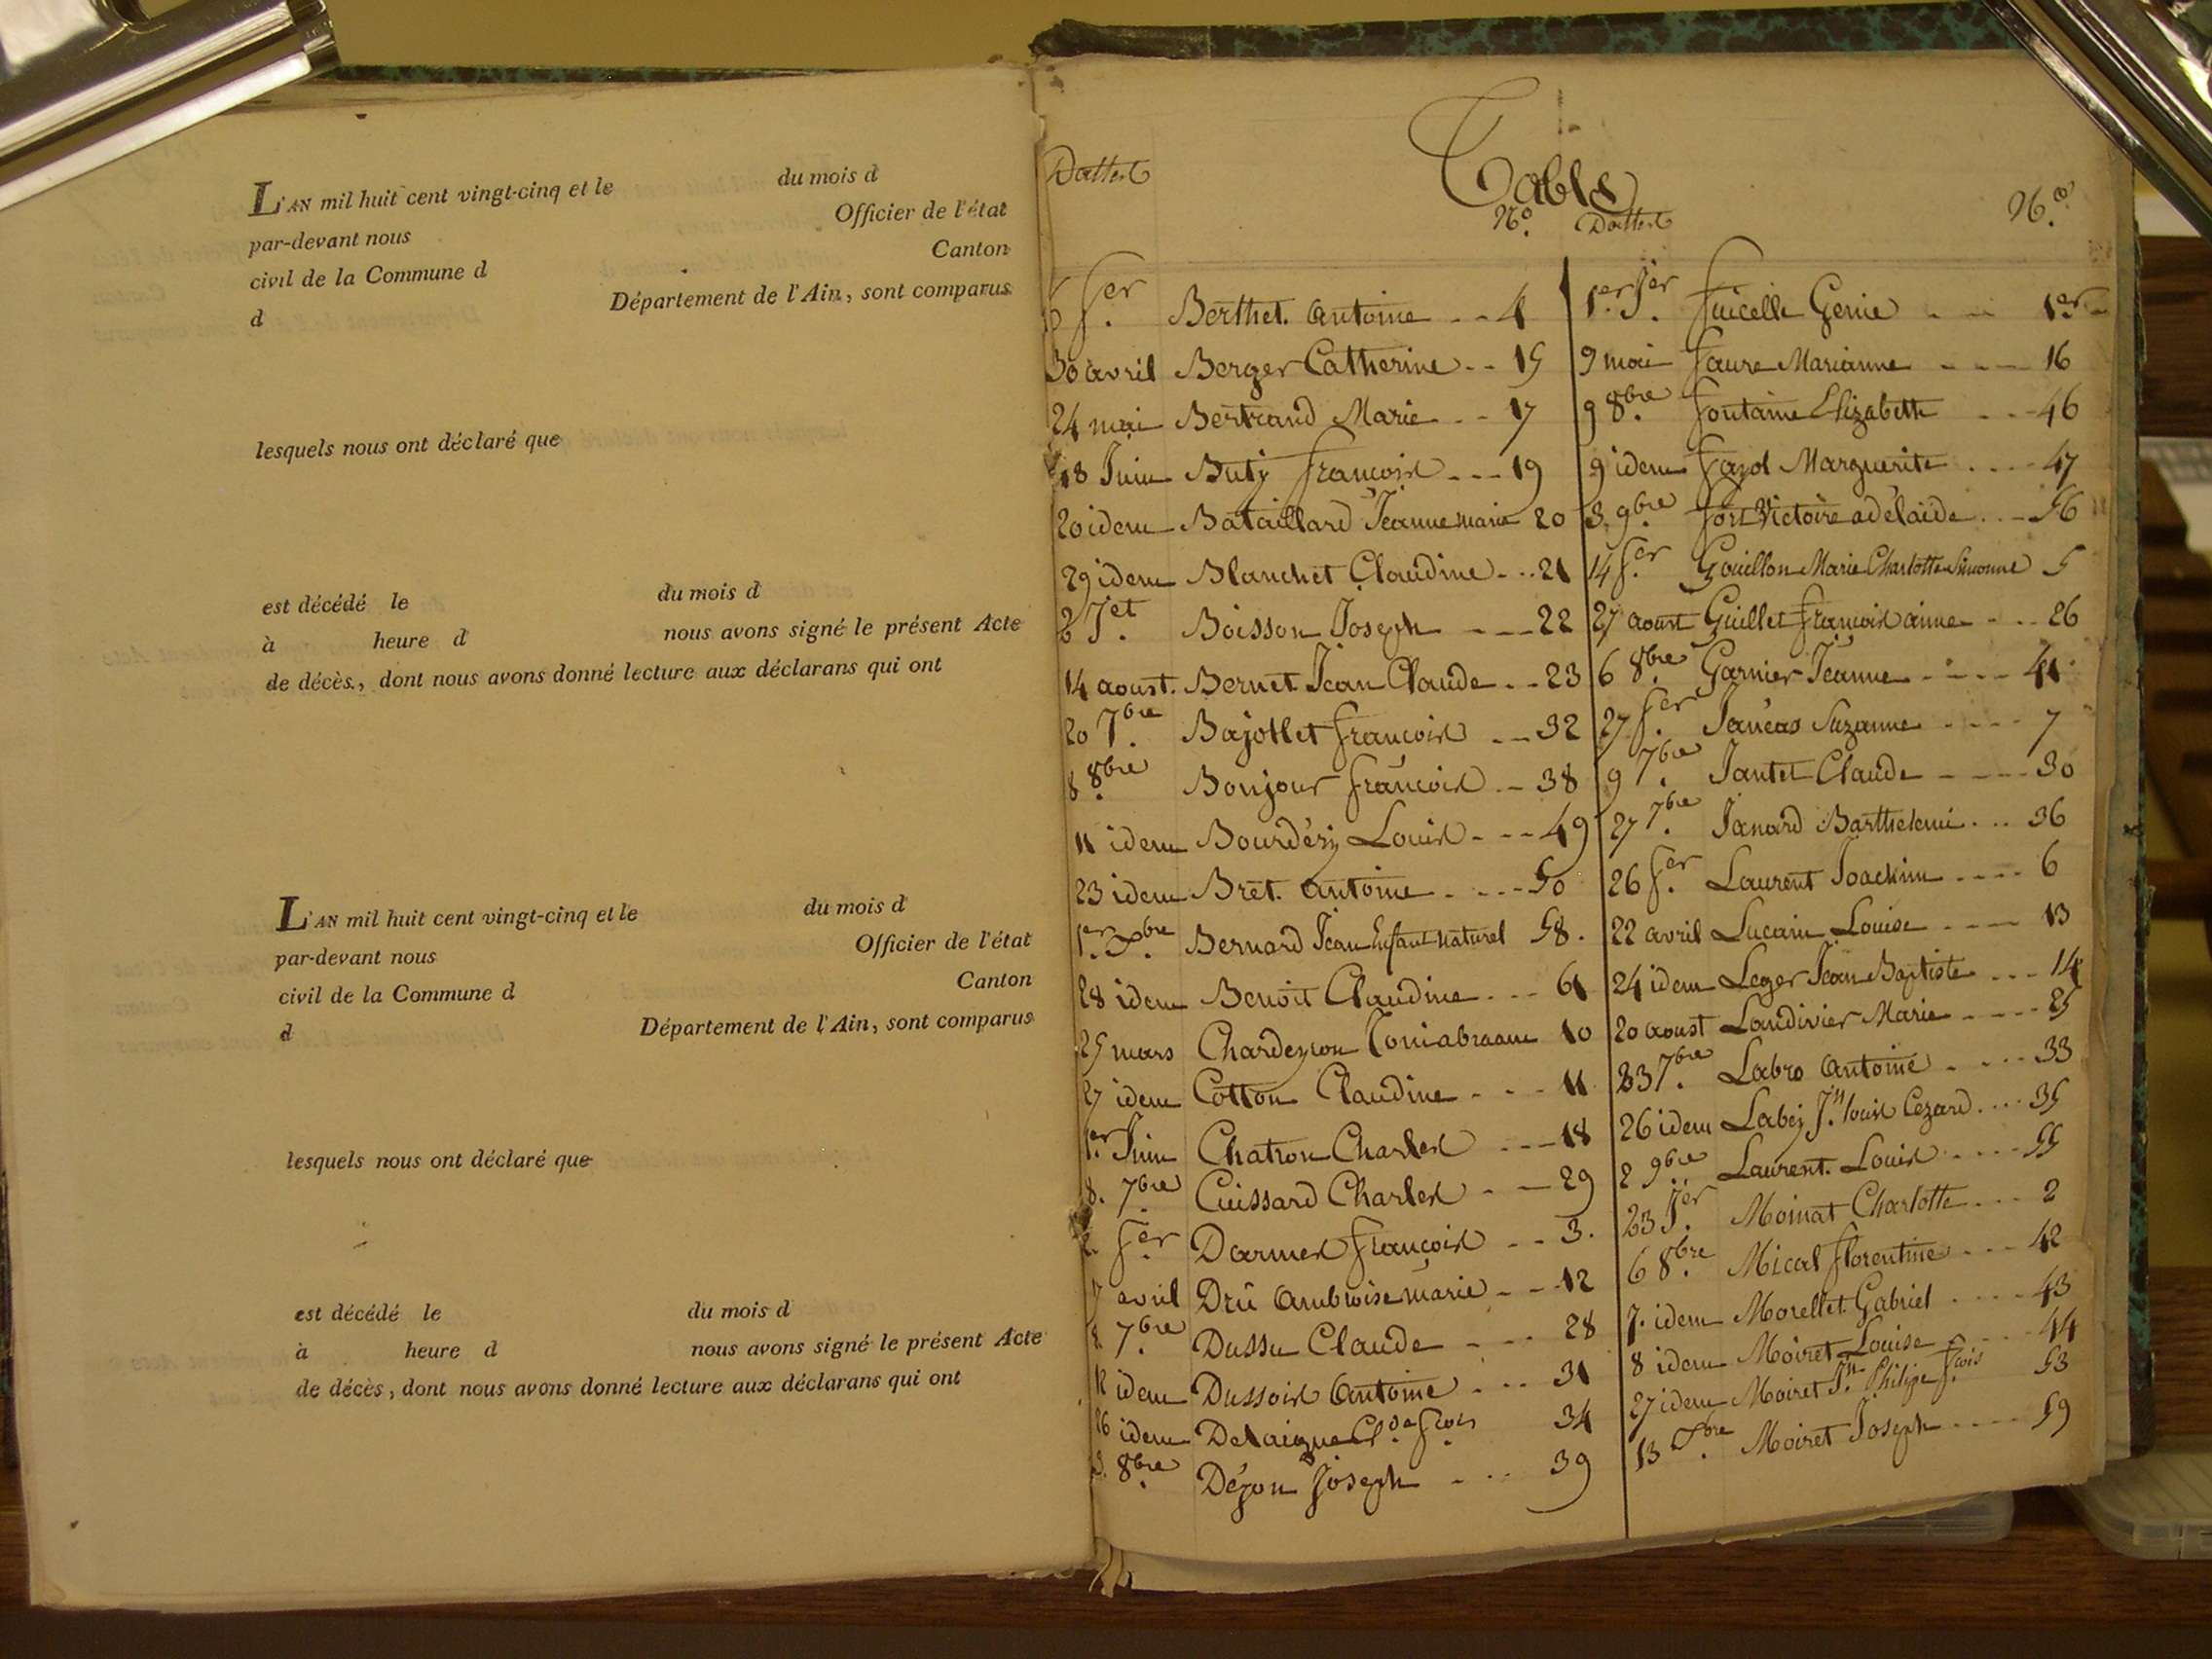 L'AN mil huit cent vingt-cinq et le du mois d
par-devant nous Officier de l'état
civil de la Commune d Canton
d Département de l'Ain, sont comparus
lesquels nous ont déclaré que
est décédé le du mois d
à heure d nous avons signé le présent Acte
de décès, dont nous avons donné lecture aux déclarans qui ont
L'AN mil huit cent vingt-cinq et le du mois d
par-devant nous Officier de l'état
civil de la Commune d Canton
d Département de l'Ain, sont comparus
lesquels nous ont déclaré que
est décédé le du mois d
à heure d nous avons signé le présent Acte
de décès, dont nous avons donné lecture aux déclarans qui ont
Table
Dattes N.º
6 f.er Berthet. antoine -- 4
30 avril Berger Catherine -- 15
24 mai Bertrand Marie -- 17
18 Juin Buty francois --- 19
20 idem Bataillard Jeanne marie 20
29 idem Blanchet Claudine --- 21
J.et Boisson Joseph --- 22
14 aoust. Bernet Jean Claude -- 23
20 7.bre Bajollet francois -- 32
8 8.bre Bonjour francois -- 38
11 idem Bourdézy Louis --- 49
23 idem Bret. antoine ---- 50
1.er X.bre Bernard Jean Enfant naturel 58.
28 idem Benoit Claudine --- 61
25 mars Chardeyron 10
27 idem Cotton Claudine --- 11
1.er Juin Chatron Charles --- 18
8. 7.bre Cuissard Charles -- 29
f.er Darmes francois -- 3.
avril Drü ambroise marie -- 12
7.bre Dussu Claude --- 28
12 idem Dussois antoine --- 31
26 idem Delaigue Cl.de f.cois 34
8.bre Déjon Joseph --- 39
Dattes N.º
1.er J.er fuicelle Genie -- 1.er
9 mai faure Marianne --- 16
9 8.bre fontaine Elizabeth --- 46
9 idem fayol Marguerite ---- 47
3. 9.bre fort Victoire adélaïde --- 56
14 f.er Gouillon Marie Charlotte Simonne 5
27 aoust Guillet francois aime --- 26
6 8.bre Garnier Jeanne ---- 41
27 f.er Janéas Suzanne ---- 7
9 7.bre Jantet Claude ---- 30
27 7.bre Janard Barthelemi --- 36
26 f.er Laurent Joachim ---- 6
22 avril Lucain Louise ---- 13
24 idem Leger Jean Baptiste --- 14
20 aoust Landivier Marie ---- 25
23 7.bre Labro antoine ---- 33
26 idem Labey J.n louis Cezard ---- 35
2 9.bre Laurent. Louis ---- 55
23 J.er Moinat Charlotte --- 2
6 8.bre Mical florentine --- 42
7. idem Morellet Gabriel ---- 43
8 idem Moiret Louise ---- 44
27 idem Moiret J.n Philipe f.cois 53
13 X.bre Moiret Joseph ---- 59